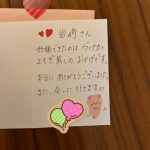 岩崎さん
妊娠できたのは ヴィナカ
よもぎ蒸しの おかげです。
本当に ありがとうございました。
また、会いに行きます